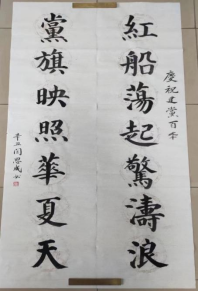 慶祝建黨百年
紅船蕩起驚濤浪
黨旗映照華夏天